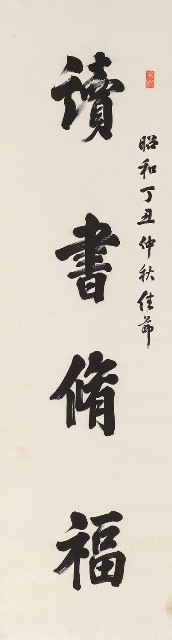 昭和丁丑仲秋佳節
讀書脩福